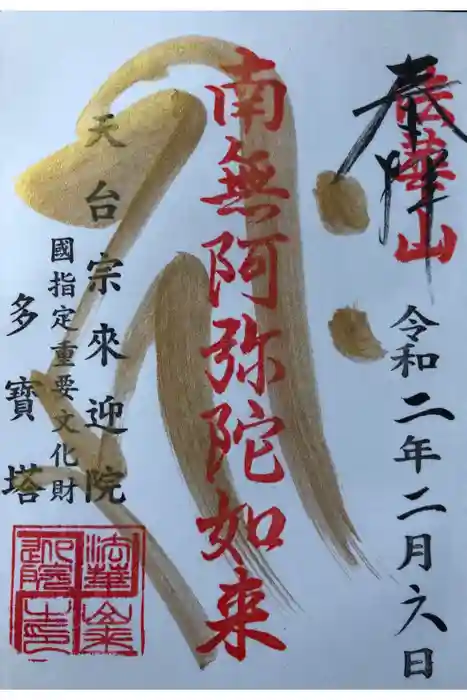 奉拝
法華山
令和二年二月六日
南無阿弥陀如来
天台宗來迎院
國指定重要文化財
多寶塔
法華山
迎院